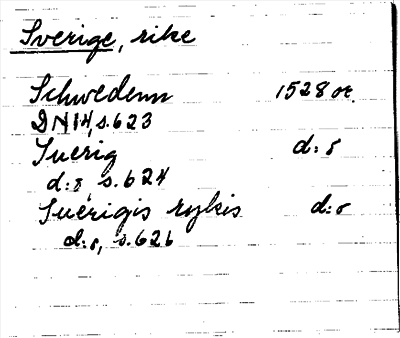 Sverige, rike
Schwedenn 1528 or.
DN14, s.623
Suerig d:o
d:o, s.624
Suerigis rykis d:o
d:o, s.626